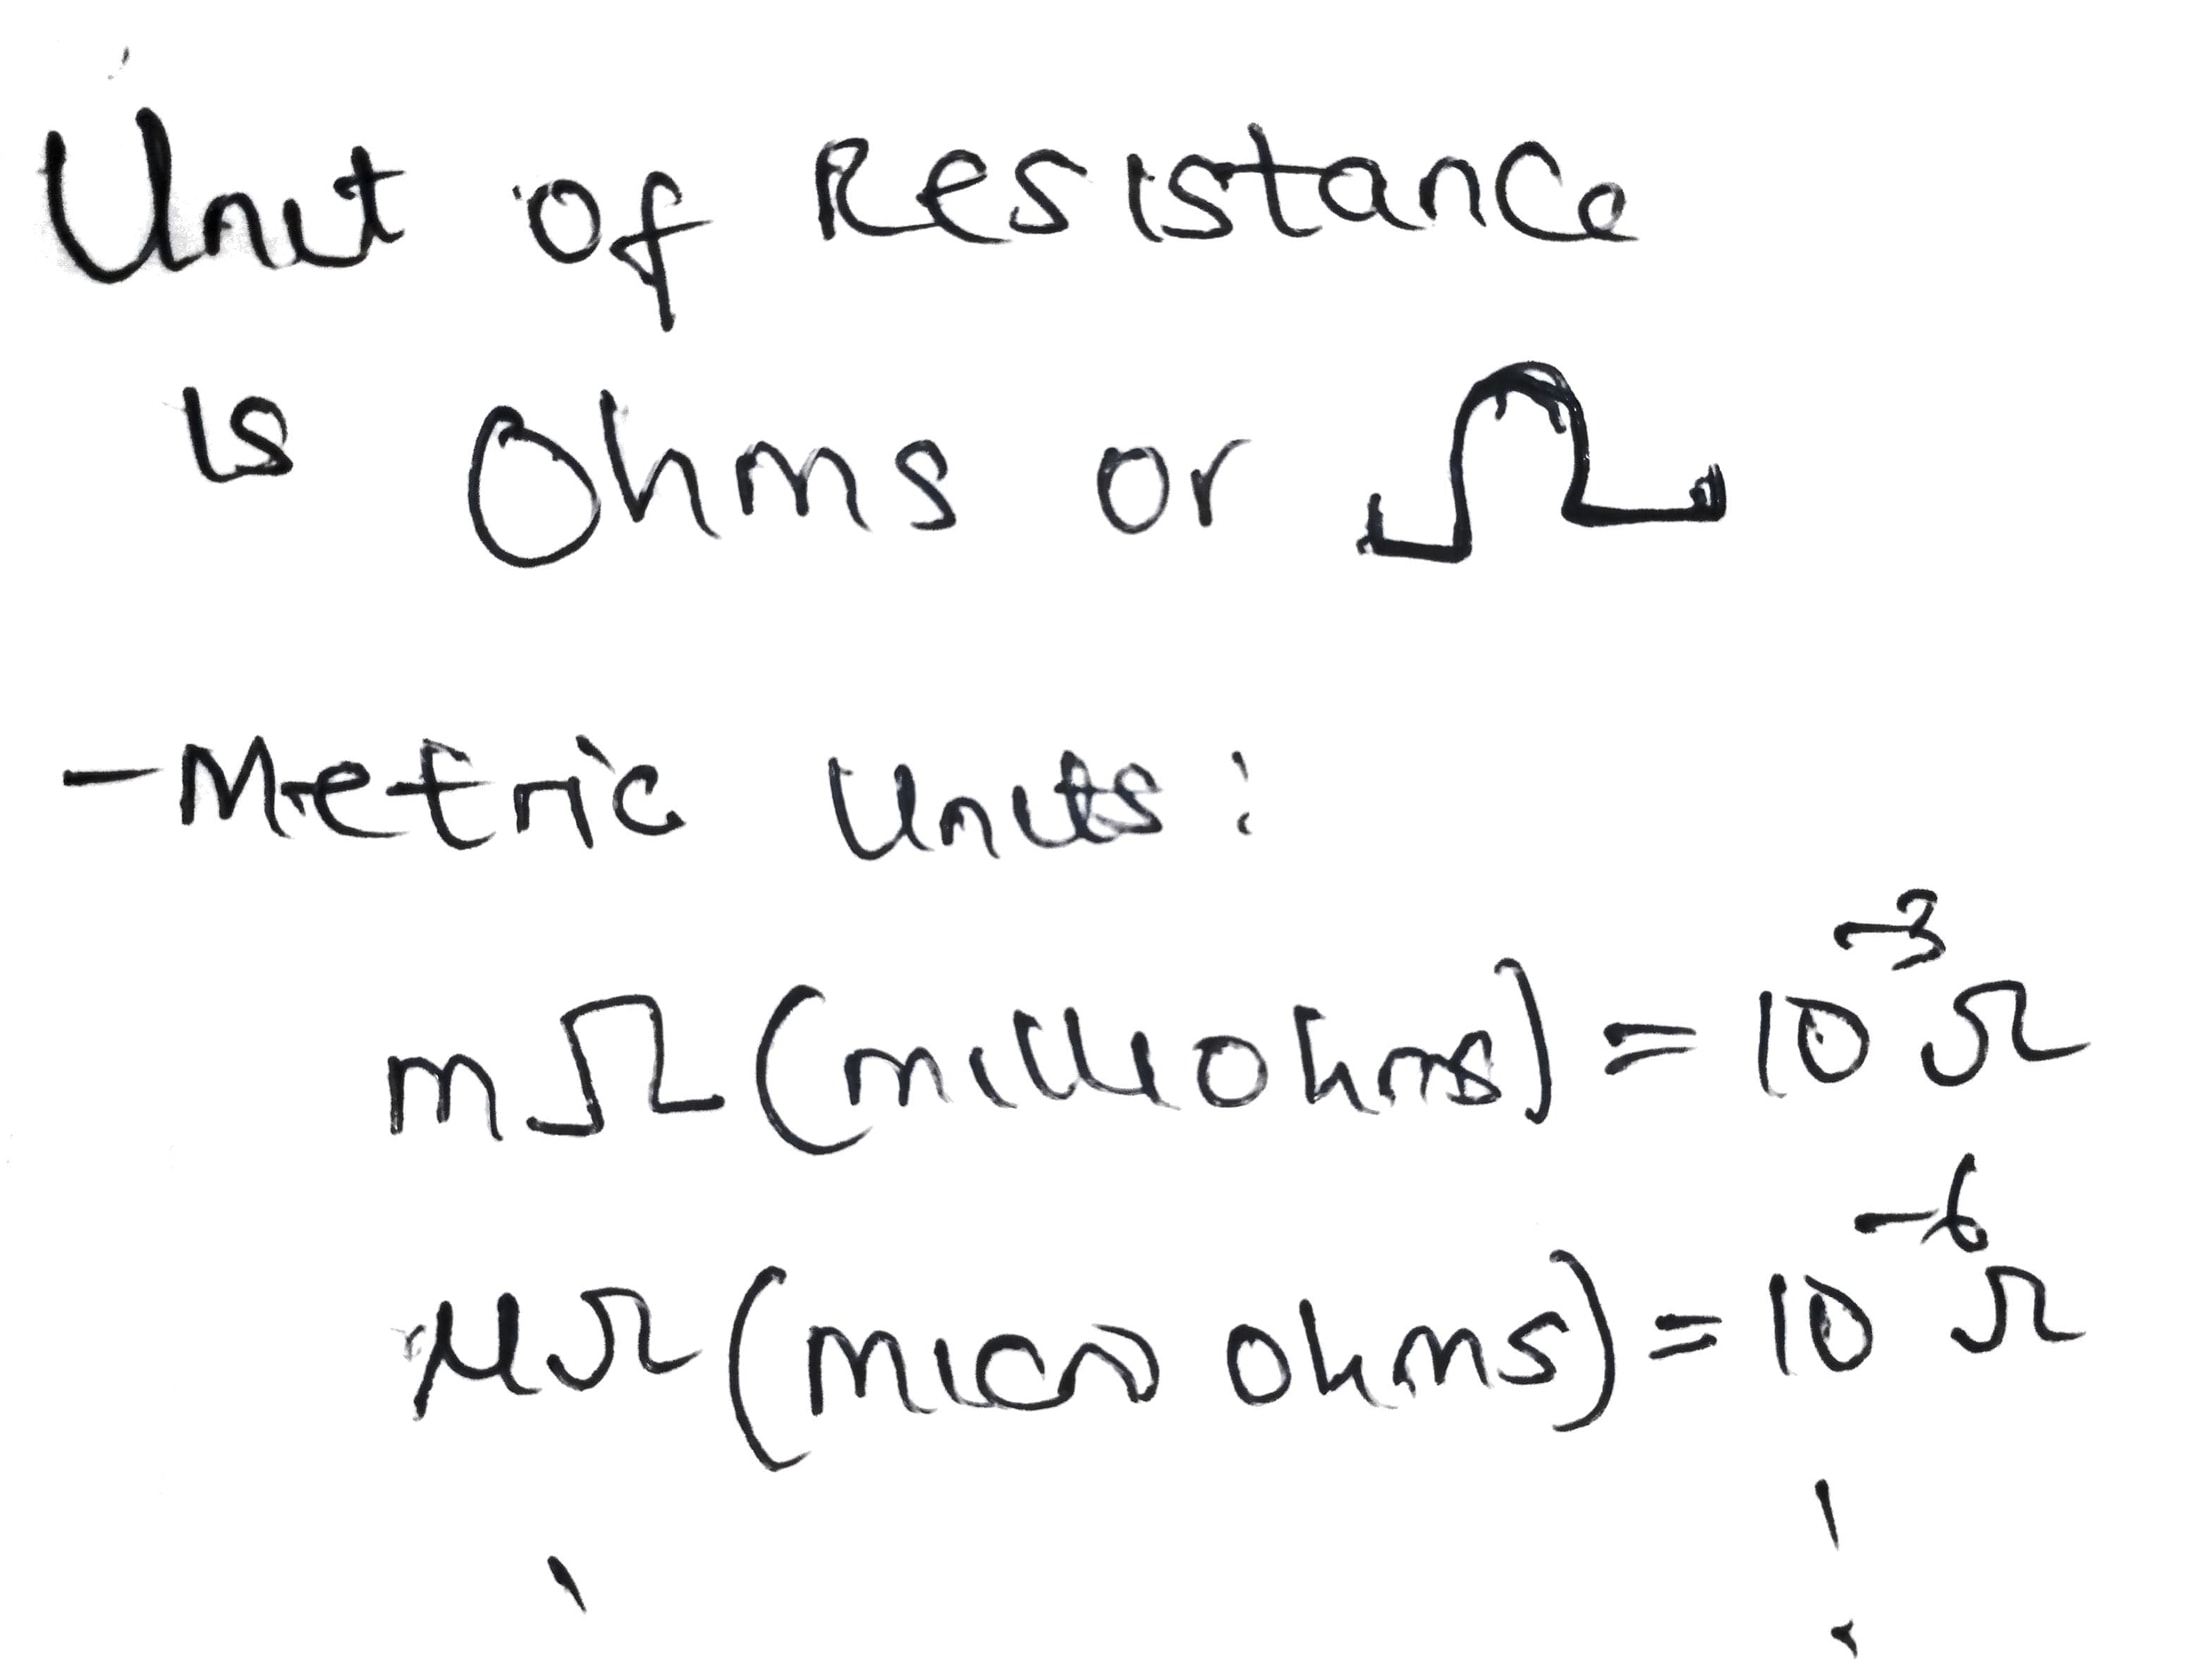 Unit of Resistance
is Ohms or Ω
- Metric Units:
mΩ (milliohms) = 10⁻³ Ω
μΩ (micro ohms) = 10⁻⁶ Ω